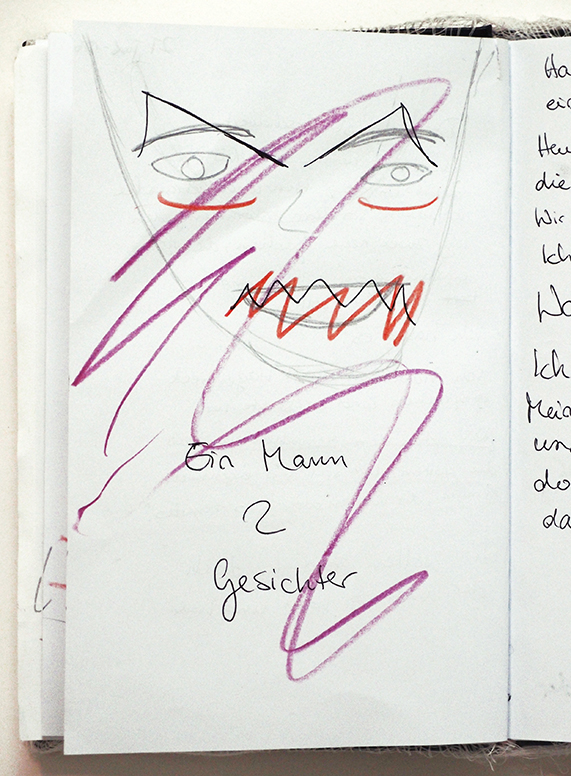 Ein Mann
2
Gesichter
Ha
eir
Heu
die
Wir
Ich
Wa
Ich
Mein
un
do
da